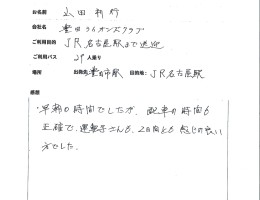 お名前 山田
会社名 豊田ライオンズクラブ
ご利用目的 JR名古屋駅まで送迎
ご利用バス 29人乗り
場所 出発地: 豊田市駅 目的地: JR名古屋駅
感想
早朝の時間でしたが、配車の時間も
正確で、運転手さんも、2日間とも感じの良い
方でした。